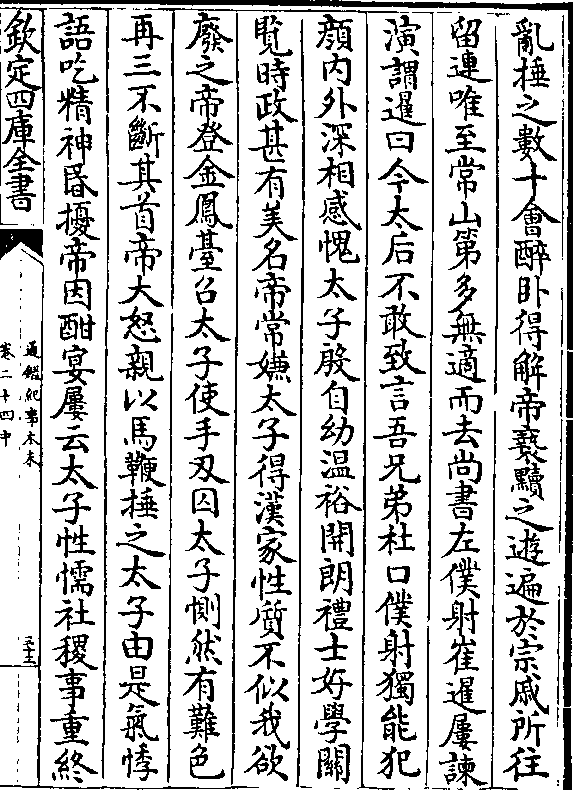 亂捶之數十會醉卧得解帝褻黷之遊遍於宗戚所往
留連唯至常山第多無適而去尚書左僕射崔暹屢諫
演謂暹曰今太后不敢致言吾兄弟杜口僕射獨能犯
顔内外深相感愧太子殷自幼温裕開朗禮士好學關
覧時政甚有美名帝常嫌太子得漢家性質不似我欲
廢之帝登金鳳臺召太子使手刃囚太子惻然有難色
再三不斷其首帝大怒親以馬鞭捶之太子由是氣悸
語吃精神昏擾帝因酣宴屢云太子性懦社稷事重終
欽定四庫全書
通鑑紀事本末
卷二十四中